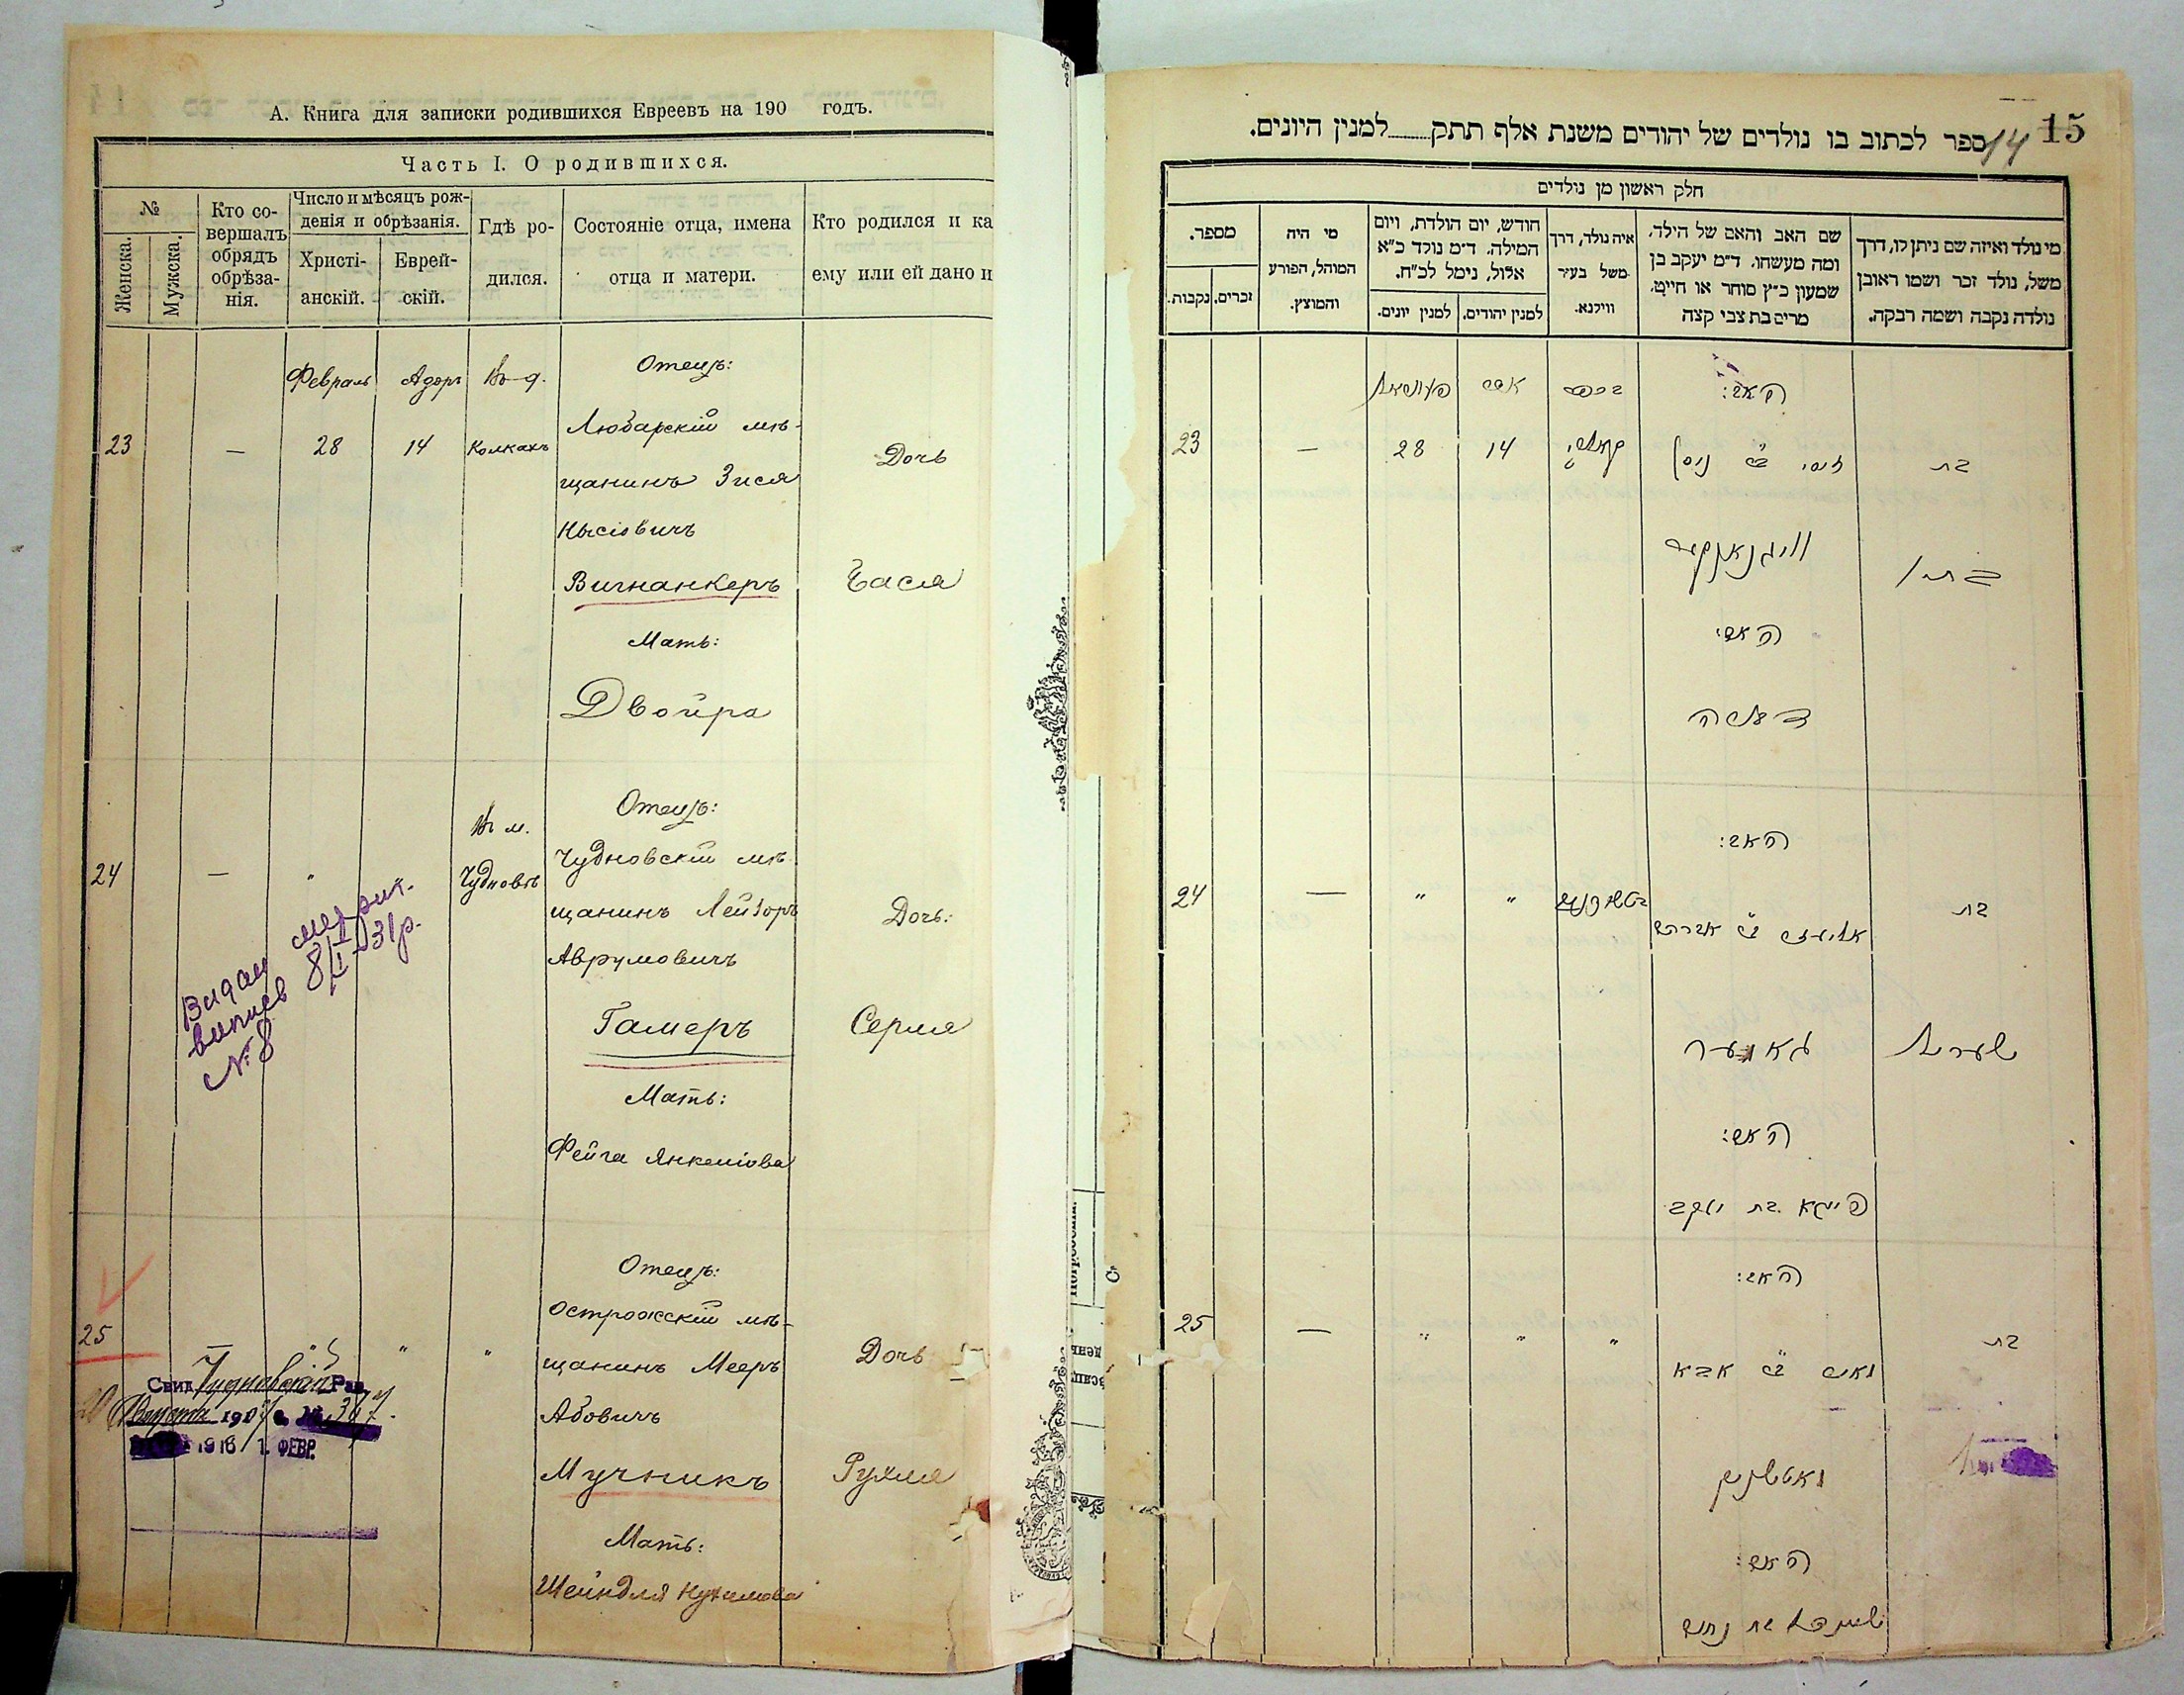 А. Книга для записки родившихся Евреевъ на 190 годъ.
Часть I. О родившихся.
№
Женска.
Мужска.
Кто со-
вершалъ
обрядъ
обрѣза-
нія.
Число и мѣсяцъ рож-
денія и обрѣзанія.
Христі-
анскій.
Еврей-
скій.
Гдѣ ро-
дился.
Состояніе отца, имена
отца и матери.
Кто родился и ка
ему или ей дано и
Февраль Адоръ Въ д. Отецъ:
23 — 28 14 Колкахъ Любарскій мѣ-
щанинъ Зися Дочь
Нысіовичъ
Вигнанкеръ Бася
Мать:
Двойра
Въ м. Отецъ:
24 — " " Чудновѣ Чудновскій мѣ-
щанинъ Лейзоръ Дочь:
Аврумовичъ
Гамеръ Серля
Мать:
Фейга Янкеліова
Видан метрич.
випись 8/I-31р.
№ 8
Отецъ:
25 — " " " Острожскій мѣ-
щанинъ Мееръ Дочь
Абовичъ
Мучникъ Рухля
Мать:
Шейндля Нухимова
Свид. Чудновскій Рав.
Августа 1907 г. № 367.
1916 1. ФЕВР.
15
14
ספר לכתוב בו נולדים של יהודים משנת אלף תתק למנין היונים.
חלק ראשון מן נולדים
מי נולד ואיזה שם ניתן לו, דרך
משל, נולד זכר ושמו ראובן
נולדה נקבה ושמה רבקה.
שם האב והאם של הילד,
ומה מעשהו. ד״מ יעקב בן
שמעון כ״ץ סוחר או חייט,
מרים בת צבי קצה
איה נולד, דרך
משל בעיר
ווילנא.
חודש, יום הולדת, ויום
המילה. ד״מ נולד כ״א
אלול, נימל לכ״ח.
למנין יהודים.
למנין יונים.
מי היה
המוהל, הפורע
והמוצץ.
מספר.
זכרים.
נקבות.
האב: בכפר אדר פעווראל
בת זיסי ב״ר ניסן 14 28 — 23
וויגנאנקער
בתי׳
האם:
דבורה
האב:
בת אליעזר ב״ר אברהם " " — 24
גאמער
האם:
פייגא בת יעקב
האב:
בת מאיר ב״ר אבא " " " — 25
מוטשניק
האם:
שיינדל בת נחום